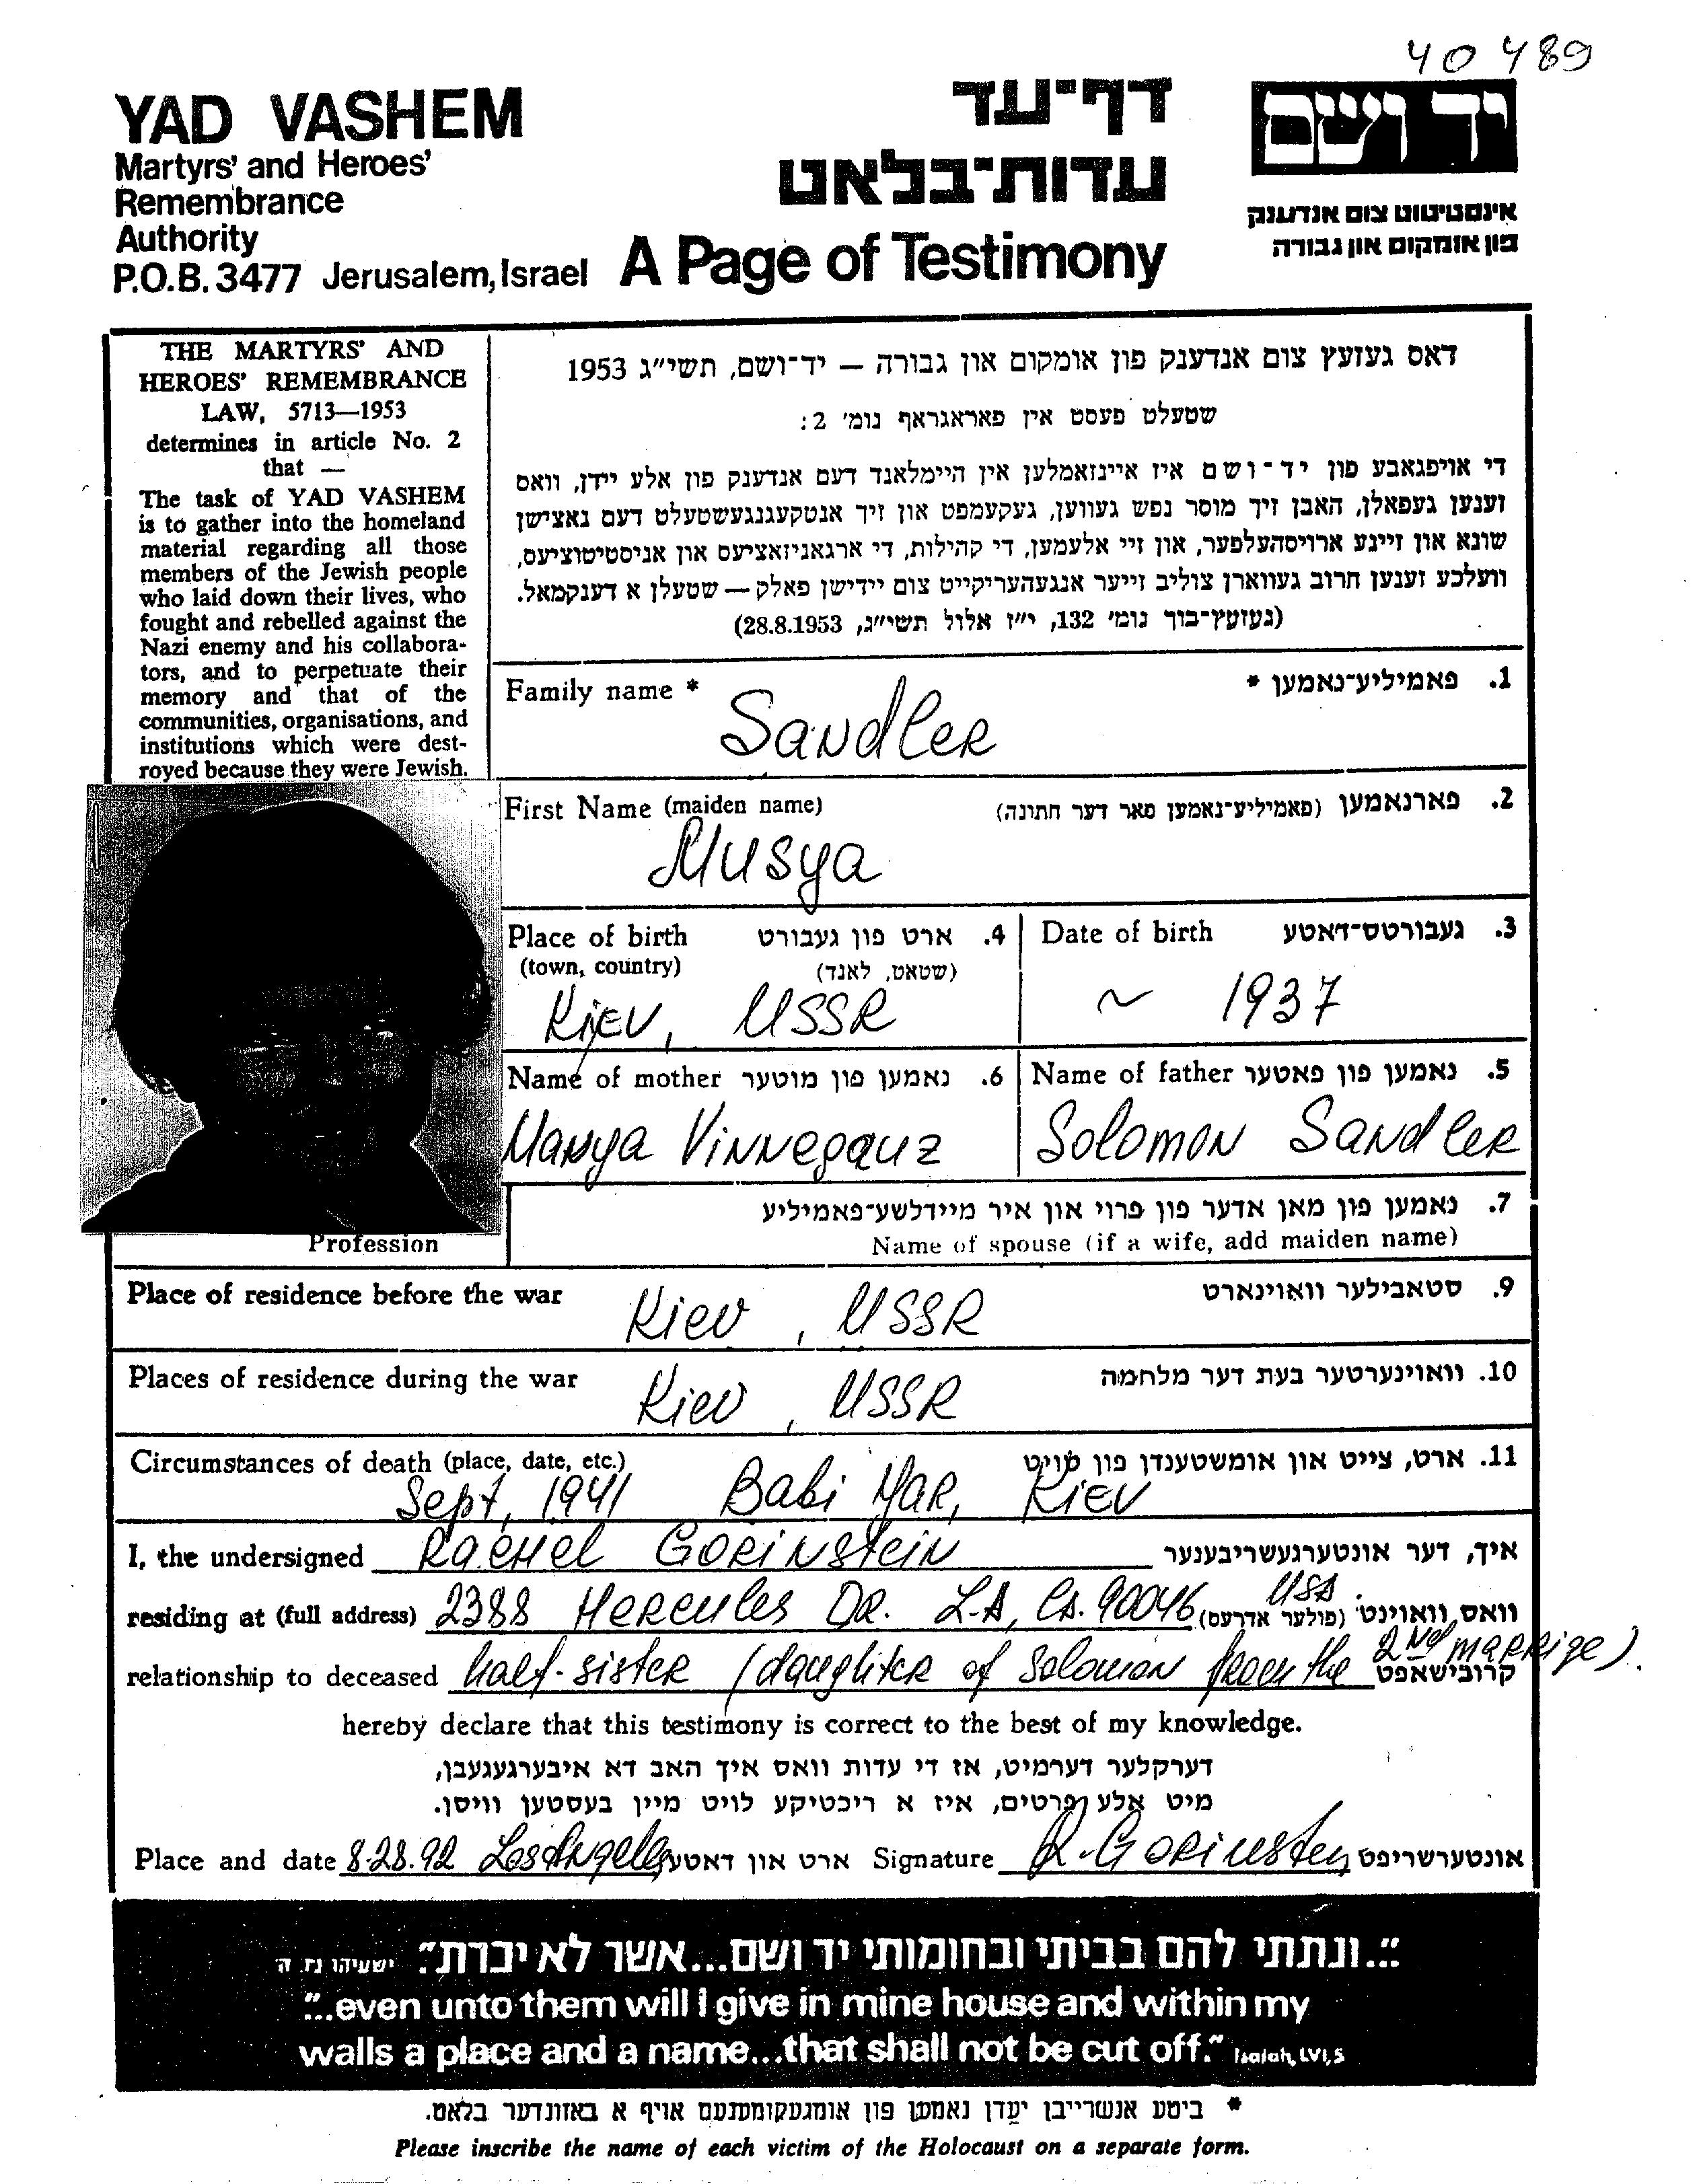 40489
YAD VASHEM
Martyrs' and Heroes'
Remembrance
Authority
P.O.B. 3477 Jerusalem, Israel
דף־עד
עדות־בלאט
A Page of Testimony
יד ושם
אינסטיטוט צום אנדענק
פון אומקום און גבורה
THE MARTYRS' AND
HEROES' REMEMBRANCE
LAW, 5713—1953
determines in article No. 2
that —
The task of YAD VASHEM
is to gather into the homeland
material regarding all those
members of the Jewish people
who laid down their lives, who
fought and rebelled against the
Nazi enemy and his collabora-
tors, and to perpetuate their
memory and that of the
communities, organisations, and
institutions which were dest-
royed because they were Jewish.
דאס געזעץ צום אנדענק פון אומקום און גבורה — יד־ושם, תשי״ג 1953
שטעלט פעסט אין פאראגראף נומ׳ 2:
די אויפגאבע פון יד־ושם איז איינזאמלען אין היימלאנד דעם אנדענק פון אלע יידן, וואס
זענען געפאלן, האבן זיך מוסר נפש געווען, געקעמפט און זיך אנטקעגנגעשטעלט דעם נאצישן
שונא און זיינע ארויסהעלפער, און זיי אלעמען, די קהילות, די ארגאניזאציעס און אניסטיטוציעס,
וועלכע זענען חרוב געווארן צוליב זייער אנגעהעריקייט צום יידישן פאלק — שטעלן א דענקמאל.
(געזעץ־בוך נומ׳ 132, י״ז אלול תשי״ג, 28.8.1953)
Family name * 1. פאמיליע־נאמען *
Sandler
First Name (maiden name) 2. פארנאמען (פאמיליע־נאמען פאר דער חתונה)
Musya
Place of birth 4. ארט פון געבורט
(town, country) (שטאט, לאנד)
Kiev, USSR
Date of birth 3. געבורטס־דאטע
~ 1937
Name of mother 6. נאמען פון מוטער
Manya Vinnegauz
Name of father 5. נאמען פון פאטער
Solomon Sandler
7. נאמען פון מאן אדער פון פרוי און איר מיידלשע־פאמיליע
Profession
Name of spouse (if a wife, add maiden name)
Place of residence before the war 9. סטאבילער וואוינארט
Kiev, USSR
Places of residence during the war 10. וואוינערטער בעת דער מלחמה
Kiev, USSR
Circumstances of death (place, date, etc.) 11. ארט, צייט און אומשטענדן פון טויט
Sept, 1941 Babi Yar, Kiev
I, the undersigned Rachel Gorinstein איך, דער אונטערגעשריבענער
residing at (full address) 2388 Hercules Dr. L.A, Ca. 90046 USA וואס וואוינט (פולער אדרעס)
relationship to deceased half-sister (daughter of Solomon from the 2nd marrige). קרובישאפט
hereby declare that this testimony is correct to the best of my knowledge.
דערקלער דערמיט, אז די עדות וואס איך האב דא איבערגעגעבן,
מיט אלע פרטים, איז א ריכטיקע לויט מיין בעסטען וויסן.
Place and date 8.28.92 Los Angeles ארט און דאטע Signature R. Gorinstein אונטערשריפט
"...ונתתי להם בביתי ובחומותי יד ושם...אשר לא יכרת". ישעיהו נו, ה
"...even unto them will I give in mine house and within my
walls a place and a name...that shall not be cut off." Isaiah, LVI,5
* ביטע אנשרייבן יעדן נאמען פון אומגעקומענעם אויף א באזונדער בלאט.
Please inscribe the name of each victim of the Holocaust on a separate form.